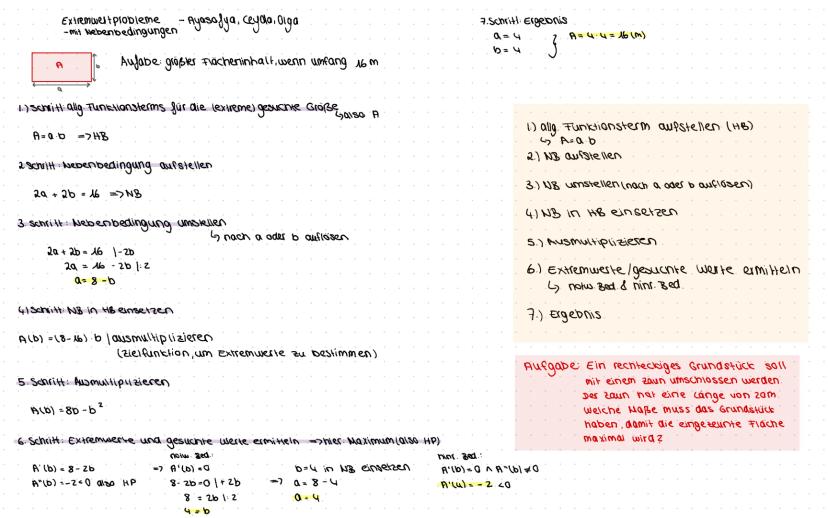 Extremwertprobleme - Ayasofya, Ceyda, Olga
- mit Nebenbedingungen
A
b
a
Aufgabe: größter Flächeninhalt, wenn umfang 16 m
1.) Schritt: allg. Funktionsterms für die (extreme) gesuchte Größe
↳ also A
A = a·b => HB
2. Schritt: Nebenbedingung aufstellen
2a + 2b = 16 => NB
3. Schritt: Nebenbedingung umstellen
↳ nach a oder b auflösen
2a + 2b = 16 |-2b
2a = 16 - 2b |:2
a = 8 - b
4.) Schritt: NB in HB einsetzen
A(b) = (8-16)·b | ausmultiplizieren
(Zielfunktion, um Extremwerte zu bestimmen)
5. Schritt: Ausmultiplizieren
A(b) = 8b - b²
6. Schritt: Extremwerte und gesuchte Werte ermitteln => hier: Maximum (also HP)
A'(b) = 8 - 2b
A''(b) = -2 < 0 also HP
notw. Bed.:
=> A'(b) = 0
8 - 2b = 0 | +2b
8 = 2b |:2
4 = b
b = 4 in NB einsetzen
=> a = 8 - 4
a = 4
hinr. Bed.:
A'(b) = 0 ∧ A''(b) ≠ 0
A''(4) = -2 < 0
7. Schritt: Ergebnis
a = 4
b = 4
A = 4·4 = 16 (m)
1) allg. Funktionsterm aufstellen (HB)
↳ A = a·b
2) NB aufstellen
3) NB umstellen (nach a oder b auflösen)
4) NB in HB einsetzen
5.) Ausmultiplizieren
6) Extremwerte/gesuchte Werte ermitteln
↳ notw. Bed. & hinr. Bed.
7.) Ergebnis
Aufgabe: Ein rechteckiges Grundstück soll
mit einem Zaun umschlossen werden.
Der Zaun hat eine Länge von 20m.
Welche Maße muss das Grundstück
haben, damit die eingezäunte Fläche
maximal wird?